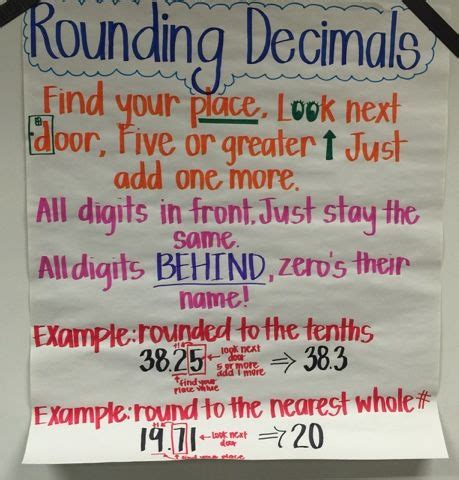 Rounding Decimals
Find your place, Look next
door, Five or greater ↑ Just
add one more.
All digits in front, Just stay the
same.
All digits BEHIND, zero's their
name!
Example: rounded to the tenths
+1
38.25 ← look next door 5 or more add 1 more ⇒ 38.3
↑ find your place value
Example: round to the nearest whole #
+1
19.71 ← look next door ⇒ 20
↑ find your place